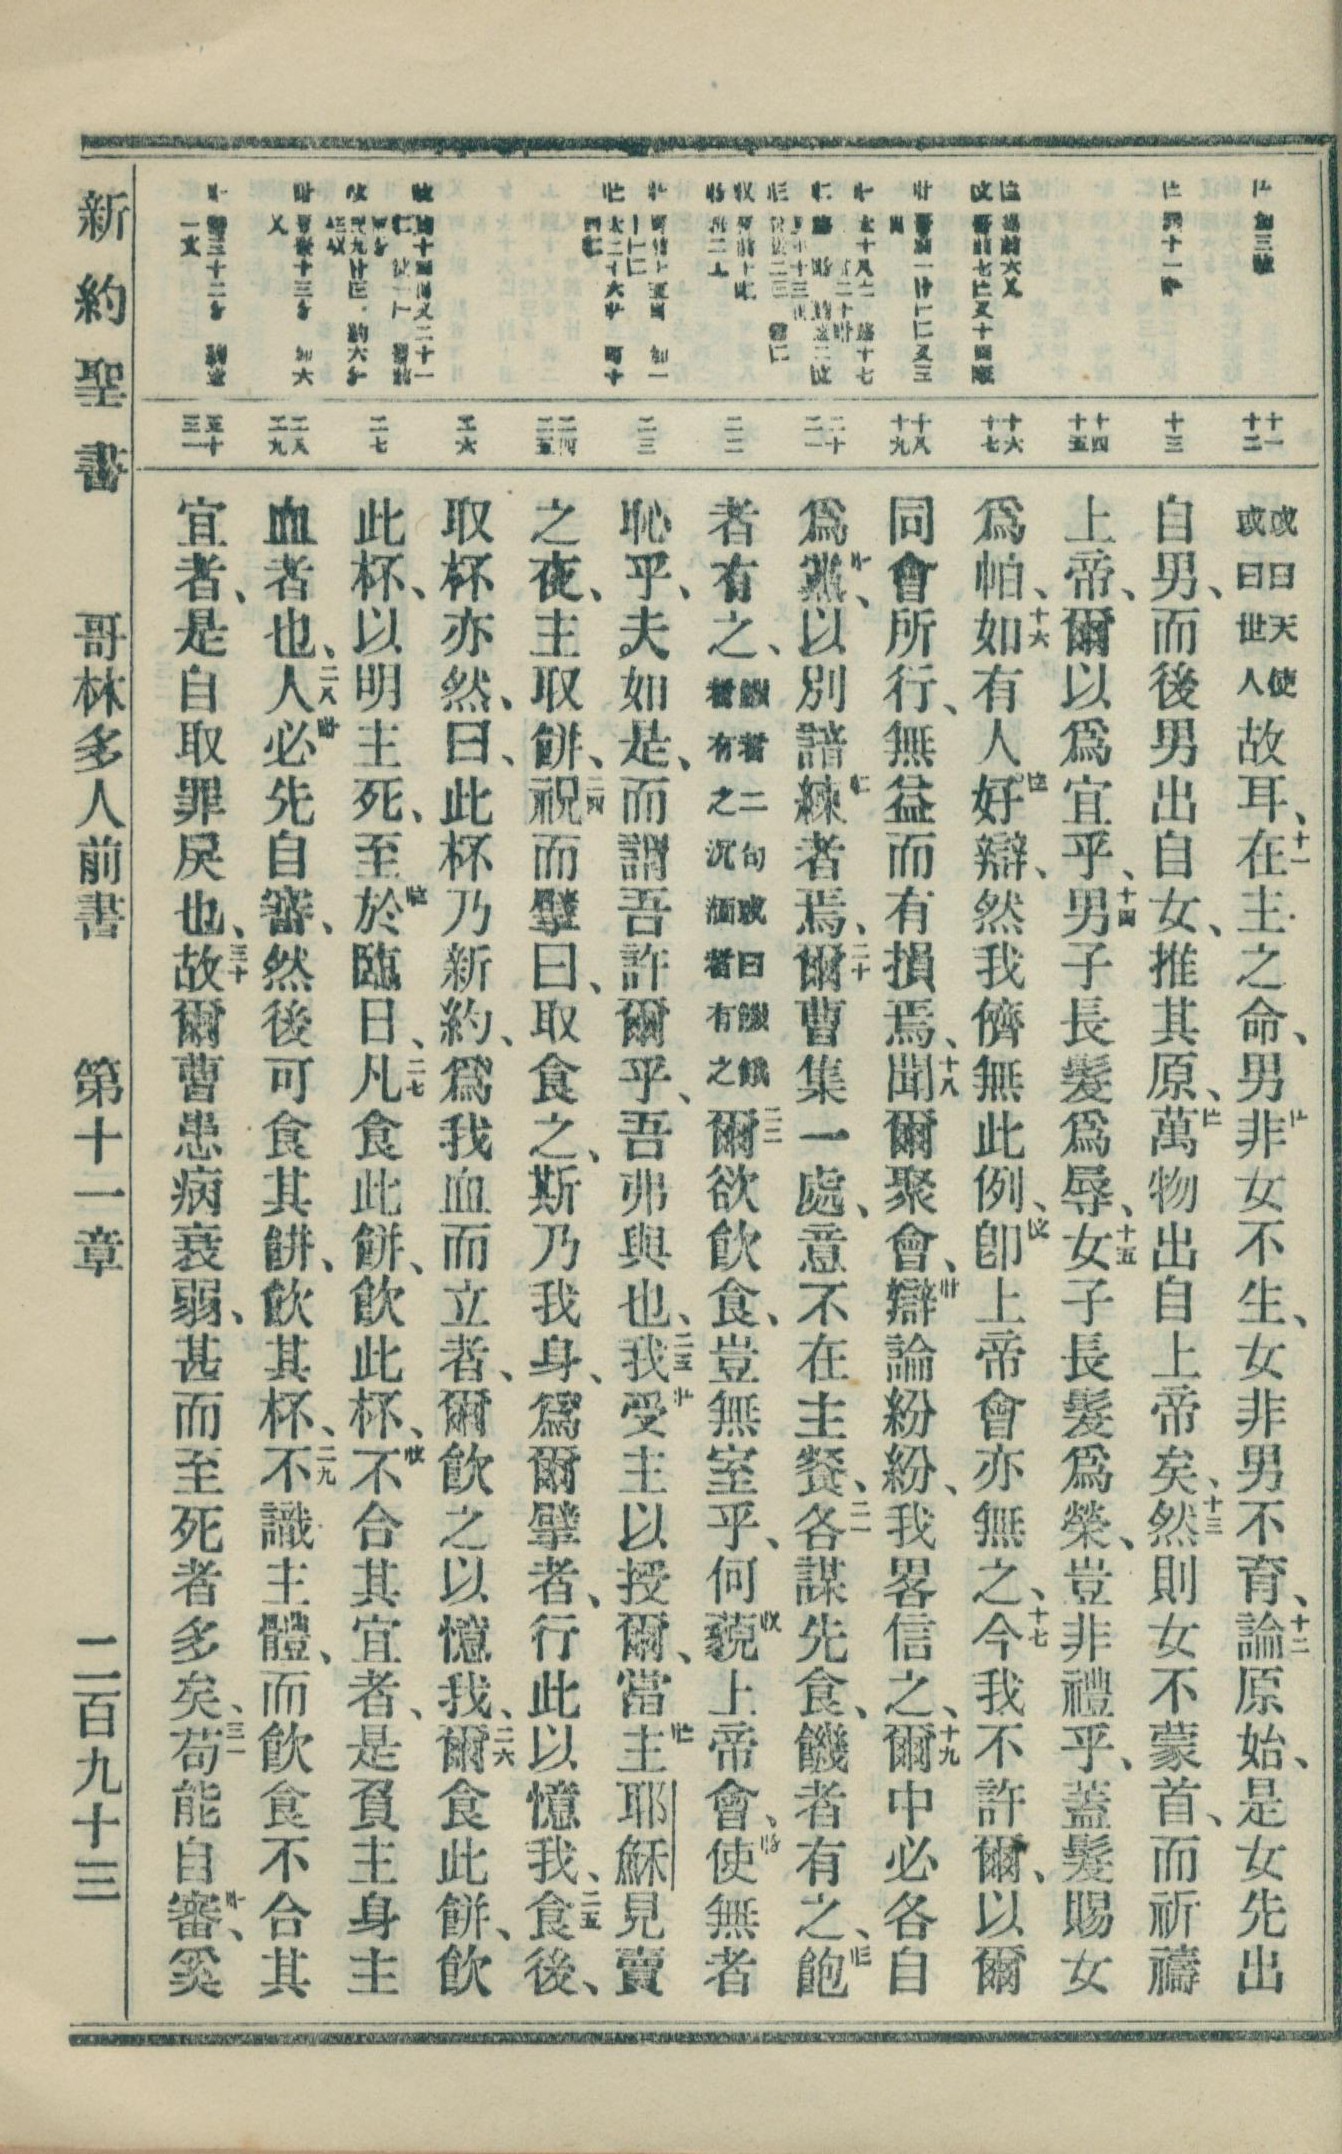 或曰天使或曰世人故耳、十一在主之命、男非女不生、女非男不育、十二論原始、是女先出
自男、而後男出自女、推其原、萬物出自上帝矣、十三然則女不蒙首、而祈禱
上帝、爾以爲宜乎、十四男子長髮爲辱、十五女子長髮爲榮、豈非禮乎、蓋髮賜女
爲帕、十六如有人好辯、然我儕無此例、卽上帝會亦無之、十七今我不許爾、以爾
同會所行、無益而有損焉、十八聞爾聚會、辯論紛紛、我畧信之、十九爾中必各自
爲黨、以別諳練者焉、二十爾曹集一處、意不在主餐、二一各謀先食、饑者有之、飽
者有之、饑者二句或曰饑餓者有之沉湎者有之二二爾欲飲食、豈無室乎、何藐上帝會、使無者
恥乎、夫如是、而謂吾許爾乎、吾弗與也、二三我受主以授爾、當主耶穌見賣
之夜、主取餅、二四祝而擘曰、取食之、斯乃我身、爲爾擘者、行此以憶我、二五食後、
取杯亦然、曰、此杯乃新約、爲我血而立者、爾飲之以憶我、二六爾食此餅、飲
此杯、以明主死、至於臨日、二七凡食此餠、飲此杯、不合其宜者、是負主身主
血者也、二八人必先自審、然後可食其餠、飲其杯、二九不識主體、而飲食不合其
宜者、是自取罪戾也、三十故爾曹患病衰弱、甚而至死者多矣、三一苟能自審、奚
新約聖書 哥林多人前書 第十一章 二百九十三
十一 十二
十三
十四 十五
十六 十七
十八 十九
二十 二一
二二
二三
二四 二五
二六
二七
二八 二九
三十 三一